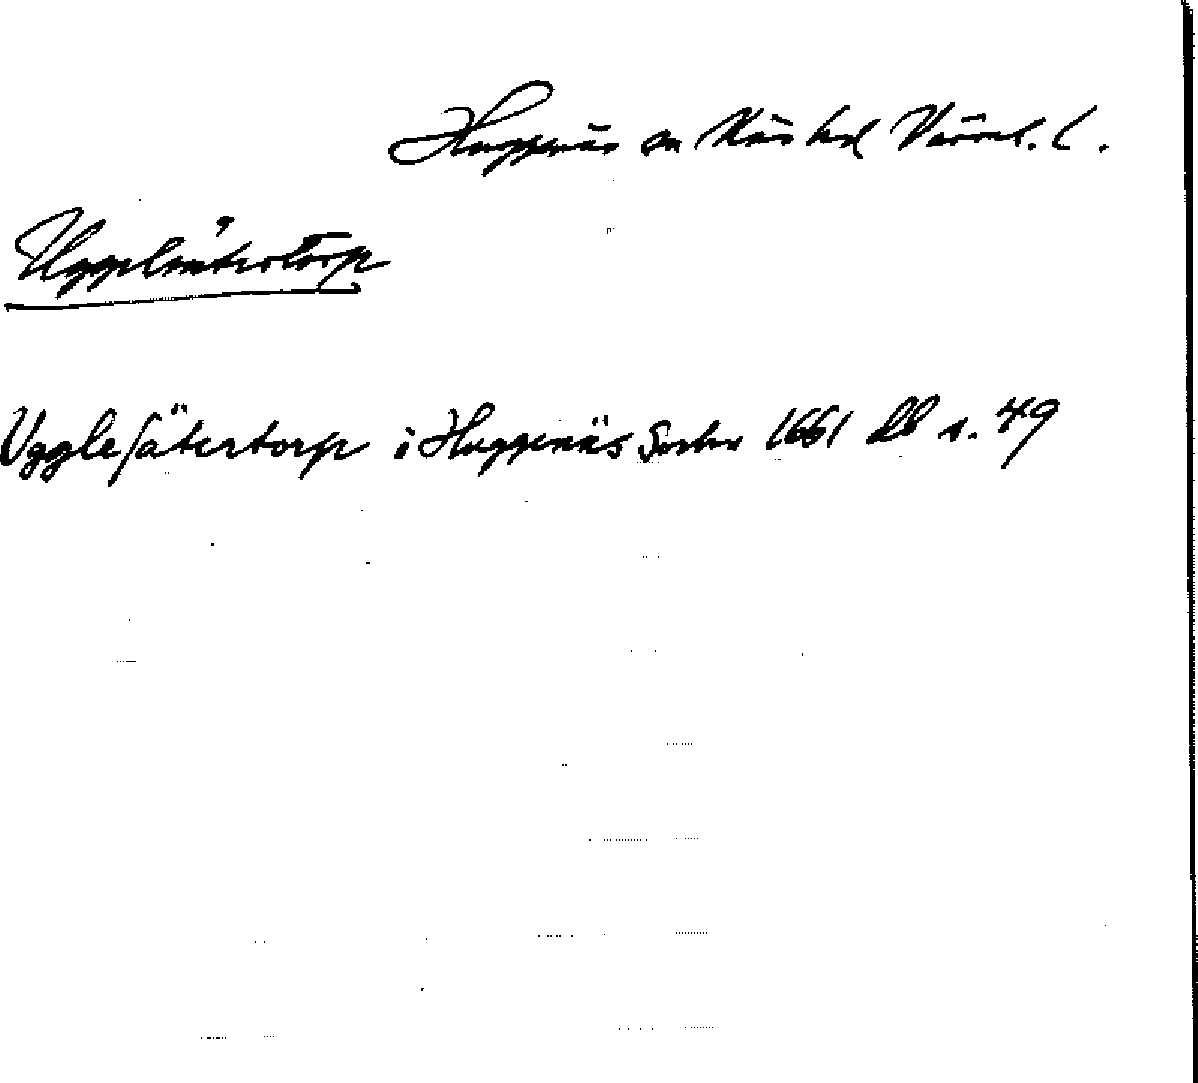 Huggenäs sn Näs hd Värml. l.
Ugglesäterstorp
Ugglesäterstorp i Huggenäs Socken 1661 db s. 49